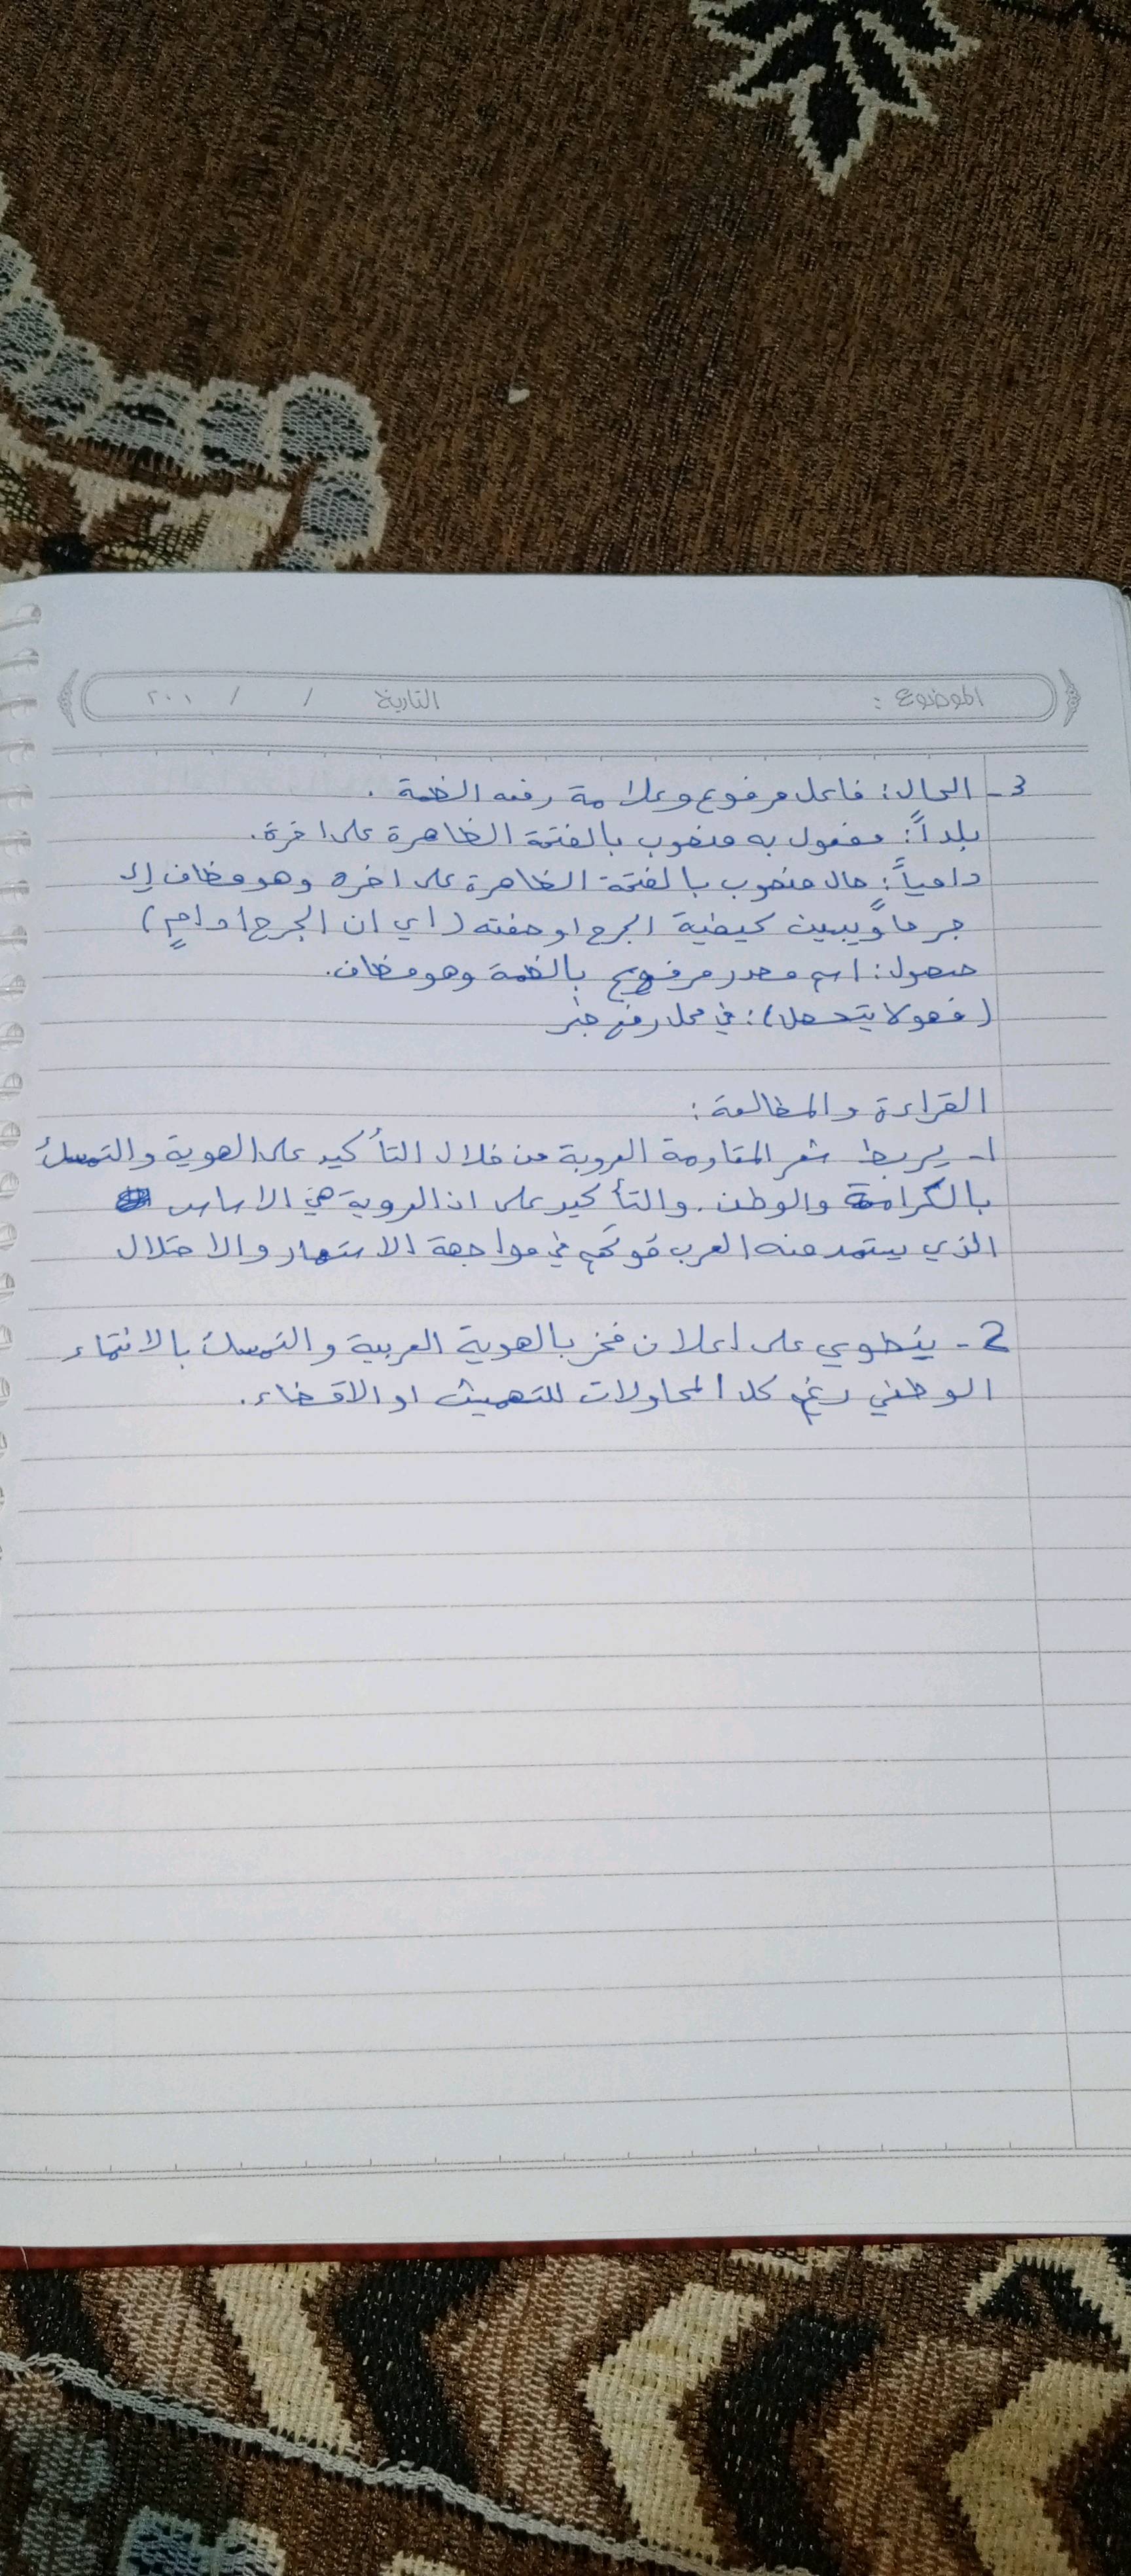 الموضوع : التاريخ / / ٢٠٠
3- الحال: فاعل مرفوع وعلامة رفعه الضمة .
بلداً: مفعول به منصوب بالفتحة الظاهرة على اخرة.
دامياً: حال منصوب بالفتحة الظاهرة على اخره وهو مضاف إلى
جرحاً ويبين كيفية الجرح او صفته (اي ان الجرح دامٍ)
حصول: اسم مصدر مرفوع بالضمة وهو مضاف.
(فهو لا يتحمل): في محل رفع خبر
القراءة والمطالعة :
1- يربط شعر المقاومة العروبة من خلال التأكيد على الهوية والتمسك
بالكرامة والوطن. والتأكيد على ان العروبة هي الاساس
الذي يستمد منه العرب قوتهم في مواجهة الاستعمار والاحتلال
2- ينطوي على اعلان فخر بالهوية العربية والتمسك بالانتماء
الوطني رغم كل المحاولات للتهميش او الاقصاء.